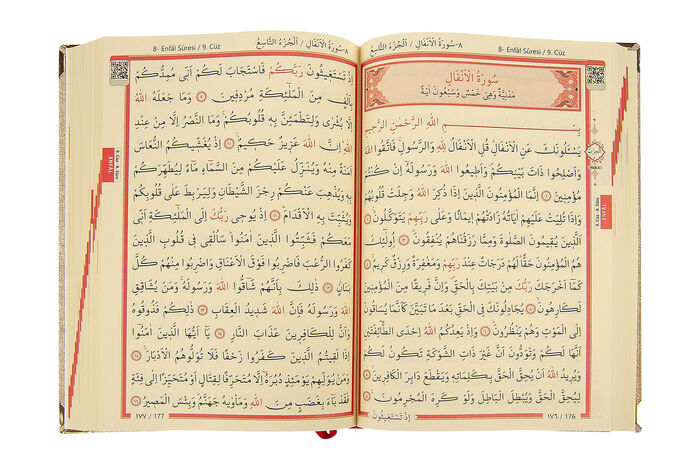 ٨-سُورَةُ الْاَنْفَالِ / اَلْجُزْءُ التَّاسِعُ
8- Enfâl Sûresi / 9. Cüz
سُورَةُ الْاَنْفَالِ
مَدَنِيَّةٌ وَهِيَ خَمْسٌ وَسَبْعُونَ اٰيَةً
بِسْمِ اللّٰهِ الرَّحْمٰنِ الرَّحٖيمِ
يَسْـَٔلُونَكَ عَنِ الْاَنْفَالِ قُلِ الْاَنْفَالُ لِلّٰهِ وَالرَّسُولِ فَاتَّقُوا اللّٰهَ
وَاَصْلِحُوا ذَاتَ بَيْنِكُمْ وَاَطٖيعُوا اللّٰهَ وَرَسُولَهُٓ اِنْ كُنْتُمْ
مُؤْمِنٖينَ ﴿١﴾ اِنَّمَا الْمُؤْمِنُونَ الَّذٖينَ اِذَا ذُكِرَ اللّٰهُ وَجِلَتْ قُلُوبُهُمْ
وَاِذَا تُلِيَتْ عَلَيْهِمْ اٰيَاتُهُ زَادَتْهُمْ اٖيمَانًا وَعَلٰى رَبِّهِمْ يَتَوَكَّلُونَ ﴿٢﴾
اَلَّذٖينَ يُقٖيمُونَ الصَّلٰوةَ وَمِمَّا رَزَقْنَاهُمْ يُنْفِقُونَ ﴿٣﴾ اُو۬لٰٓئِكَ
هُمُ الْمُؤْمِنُونَ حَقًّا لَهُمْ دَرَجَاتٌ عِنْدَ رَبِّهِمْ وَمَغْفِرَةٌ وَرِزْقٌ كَرٖيمٌ ﴿٤﴾
كَمَٓا اَخْرَجَكَ رَبُّكَ مِنْ بَيْتِكَ بِالْحَقِّ وَاِنَّ فَرٖيقًا مِنَ الْمُؤْمِنٖينَ
لَكَارِهُونَ ﴿٥﴾ يُجَادِلُونَكَ فِي الْحَقِّ بَعْدَ مَا تَبَيَّنَ كَاَنَّمَا يُسَاقُونَ
اِلَى الْمَوْتِ وَهُمْ يَنْظُرُونَ ﴿٦﴾ وَاِذْ يَعِدُكُمُ اللّٰهُ اِحْدَى الطَّٓائِفَتَيْنِ
اَنَّهَا لَكُمْ وَتَوَدُّونَ اَنَّ غَيْرَ ذَاتِ الشَّوْكَةِ تَكُونُ لَكُمْ
وَيُرٖيدُ اللّٰهُ اَنْ يُحِقَّ الْحَقَّ بِكَلِمَاتِهٖ وَيَقْطَعَ دَابِرَ الْكَافِرٖينَ ﴿٧﴾
لِيُحِقَّ الْحَقَّ وَيُبْطِلَ الْبَاطِلَ وَلَوْ كَرِهَ الْمُجْرِمُونَ ﴿٨﴾
اِذْ تَسْتَغٖيثُونَ
١٧٦ / 176
9. Cüz - 8. Sûre
ENFÂL
8- Enfâl Sûresi / 9. Cüz
٨-سُورَةُ الْاَنْفَالِ / اَلْجُزْءُ التَّاسِعُ
اِذْ تَسْتَغٖيثُونَ رَبَّكُمْ فَاسْتَجَابَ لَكُمْ اَنّٖي مُمِدُّكُمْ
بِاَلْفٍ مِنَ الْمَلٰٓئِكَةِ مُرْدِفٖينَ ﴿٩﴾ وَمَا جَعَلَهُ اللّٰهُ
اِلَّا بُشْرٰى وَلِتَطْمَئِنَّ بِهٖ قُلُوبُكُمْ وَمَا النَّصْرُ اِلَّا مِنْ عِنْدِ
اللّٰهِ اِنَّ اللّٰهَ عَزٖيزٌ حَكٖيمٌ ﴿١٠﴾ اِذْ يُغَشّٖيكُمُ النُّعَاسَ
اَمَنَةً مِنْهُ وَيُنَزِّلُ عَلَيْكُمْ مِنَ السَّمَٓاءِ مَٓاءً لِيُطَهِّرَكُمْ
بِهٖ وَيُذْهِبَ عَنْكُمْ رِجْزَ الشَّيْطَانِ وَلِيَرْبِطَ عَلٰى قُلُوبِكُمْ
وَيُثَبِّتَ بِهِ الْاَقْدَامَ ﴿١١﴾ اِذْ يُوحٖي رَبُّكَ اِلَى الْمَلٰٓئِكَةِ اَنّٖي
مَعَكُمْ فَثَبِّتُوا الَّذٖينَ اٰمَنُوا سَاُلْقٖي فٖي قُلُوبِ الَّذٖينَ
كَفَرُوا الرُّعْبَ فَاضْرِبُوا فَوْقَ الْاَعْنَاقِ وَاضْرِبُوا مِنْهُمْ كُلَّ
بَنَانٍ ﴿١٢﴾ ذٰلِكَ بِاَنَّهُمْ شَٓاقُّوا اللّٰهَ وَرَسُولَهُ وَمَنْ يُشَاقِقِ
اللّٰهَ وَرَسُولَهُ فَاِنَّ اللّٰهَ شَدٖيدُ الْعِقَابِ ﴿١٣﴾ ذٰلِكُمْ فَذُوقُوهُ
وَاَنَّ لِلْكَافِرٖينَ عَذَابَ النَّارِ ﴿١٤﴾ يَٓا اَيُّهَا الَّذٖينَ اٰمَنُٓوا
اِذَا لَقٖيتُمُ الَّذٖينَ كَفَرُوا زَحْفًا فَلَا تُوَلُّوهُمُ الْاَدْبَارَ ﴿١٥﴾
وَمَنْ يُوَلِّهِمْ يَوْمَئِذٍ دُبُرَهُٓ اِلَّا مُتَحَرِّفًا لِقِتَالٍ اَوْ مُتَحَيِّزًا اِلٰى فِئَةٍ
فَقَدْ بَٓاءَ بِغَضَبٍ مِنَ اللّٰهِ وَمَأْوٰيهُ جَهَنَّمُ وَبِئْسَ الْمَصٖيرُ ﴿١٦﴾
١٧٧ / 177
9. Cüz - 8. Sûre
ENFÂL